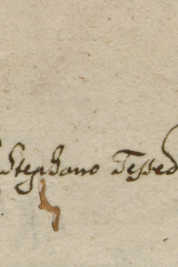 Stephano Tessed